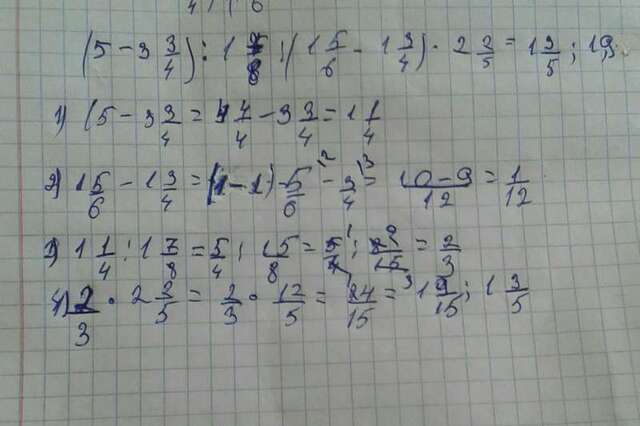 (5 - 3 3/4) : 1 7/8 : (1 5/6 - 1 3/4) · 2 2/5 = 1 3/5 ;
1) (5 - 3 3/4 = 4 4/4 - 3 3/4 = 1 1/4
2) 1 5/6 - 1 3/4 = (1 - 1) 5/6 - 3/4 = 10-9/12 = 1/12
3) 1 1/4 : 1 7/8 = 5/4 : 15/8 = 5/4 : 8/15 = 2/3
4) 2/3 · 2 2/5 = 2/3 · 12/5 = 24/15 = 1 9/15 ; 1 3/5